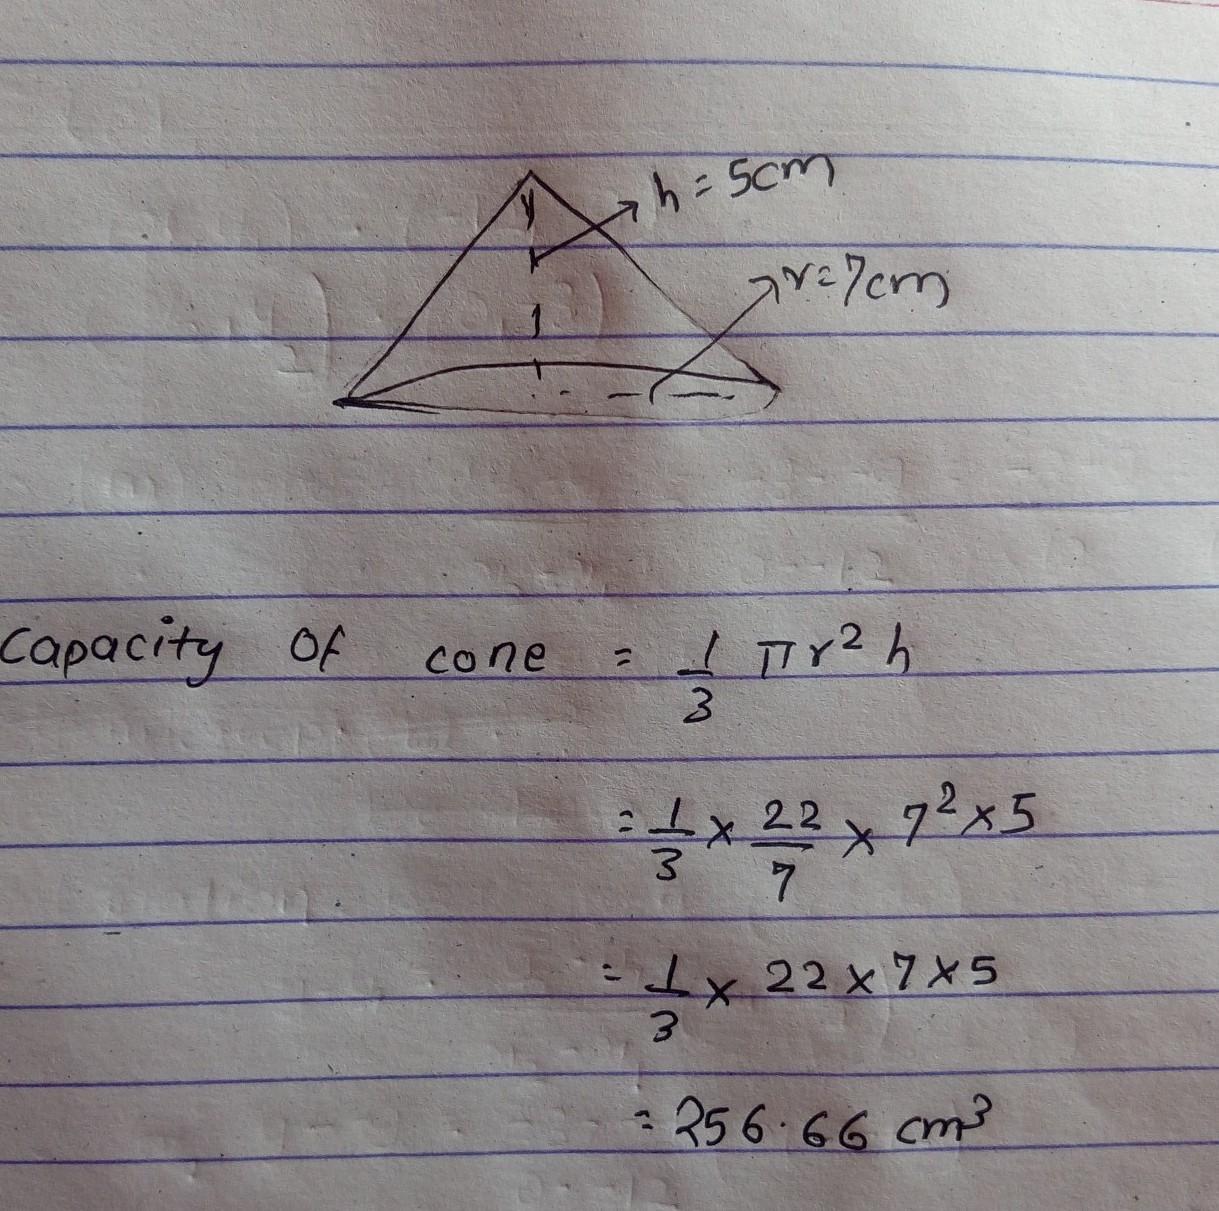 h = 5cm
r = 7cm
Capacity Of cone = 1/3 πr² h
= 1/3 × 22/7 × 7² × 5
= 1/3 × 22 × 7 × 5
= 256.66 cm³